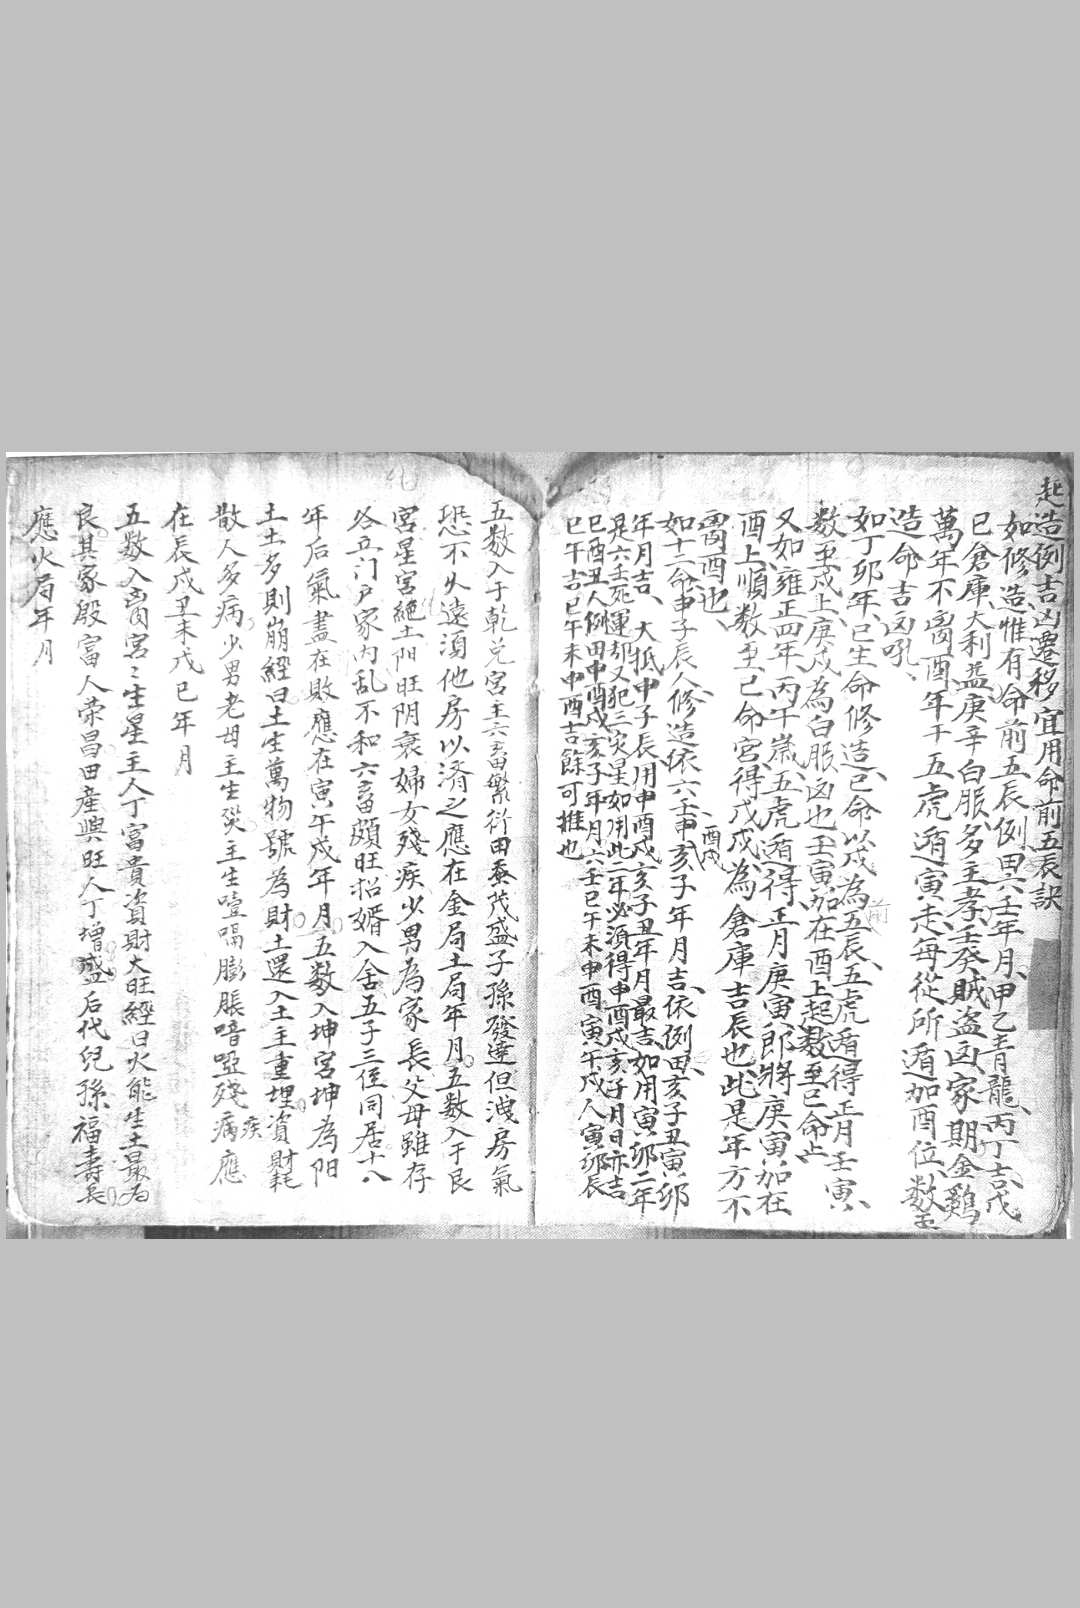 起造例吉凶遷移宜用命前五辰訣
如修造惟有命前五辰例田六壬年月甲乙青龍丙丁吉戊
已倉庫大利益庚辛白服多主孝壬癸賊盗凶家期金鷄
萬年不离酉年干五虎遁寅走每從所遁加酉位数至
造命吉凶吼
如丁卯年已生命修造已命以戌為五辰五虎遁得正月壬寅
前
数至戌上庚戌為白服凶也壬寅加在酉上起数至已命止
又如雍正四年丙午歲五虎遁得正月庚寅郎將庚寅加在
酉上順数至已命宮得戊戌為倉庫吉辰也此是年方不
离酉也
如十二命申子辰人修造依六壬申亥子年月吉依例田亥子丑寅卯
酉戌
年月吉大抵申子辰用申酉戌亥子丑年月最吉如用寅卯二年
是六壬死運却又犯三灾星如用此二年必湏得申酉戌亥子月日亦吉
巳酉丑人例田申酉戌亥子年月六壬巳午未申酉寅午戌人寅卯辰
巳午吉巳午未申酉吉餘可推也
五数入于乾兑宮主六畜繁衍田蚕茂盛子孫發達但洩房氣
恐不久遠湏他房以済之應在金局土局年月五数入于艮
宮星宮絶土阳旺阴衰婦女殘疾少男為家長父母雖存
各立门户家内乱不和六畜頗旺招婿入舍五子三侄同居十八
年后氣盡在敗應在寅午戌年月五数入坤宮坤為阳
土土多則崩經曰土生萬物號為財土還入土主重埋資財耗
散人多病少男老母主生災主生噎嗝膨脹喑啞殘疾病應
在辰戌丑未戊已年月
五数入离宮宮生星主人丁富貴資財大旺經曰火能生土最为
良其家殷富人荣昌田産興旺人丁增盛后代兒孫福壽長
應火局年月